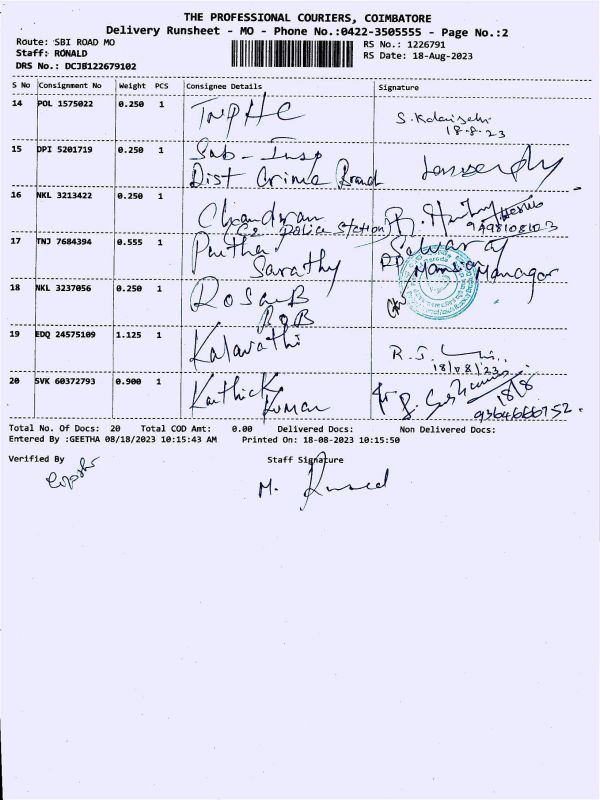 THE PROFESSIONAL COURIERS, COIMBATORE
Delivery Runsheet - MO - Phone No.:0422-3505555 - Page No.:2
Route: SBI ROAD MO
RS No.: 1226791
Staff: RONALD
RS Date: 18-Aug-2023
DRS No.: DCJB122679102
S No Consignment No Weight PCS Consignee Details Signature
14 POL 1575022 0.250 1 TNPHC
18.8.23
15 DPI 5201719 0.250 1 Sub-Insp
Dist Crime Brand
16 NKL 3213422 0.250 1 Chandran
C2 Police Station
9498108123
17 TNJ 7684394 0.555 1 Partha
Sarathy
Mansion Manager
18 NKL 3237056 0.250 1 Rosa B
ROB
19 EDQ 24575109 1.125 1 Kalavathi
18/08/23
20 SVK 60372793 0.900 1 Karthick
Kumar
18/8
9364666752
Total No. Of Docs: 20 Total COD Amt: 0.00 Delivered Docs: Non Delivered Docs:
Entered By :GEETHA 08/18/2023 10:15:43 AM Printed On: 18-08-2023 10:15:50
Verified By Staff Signature
M.